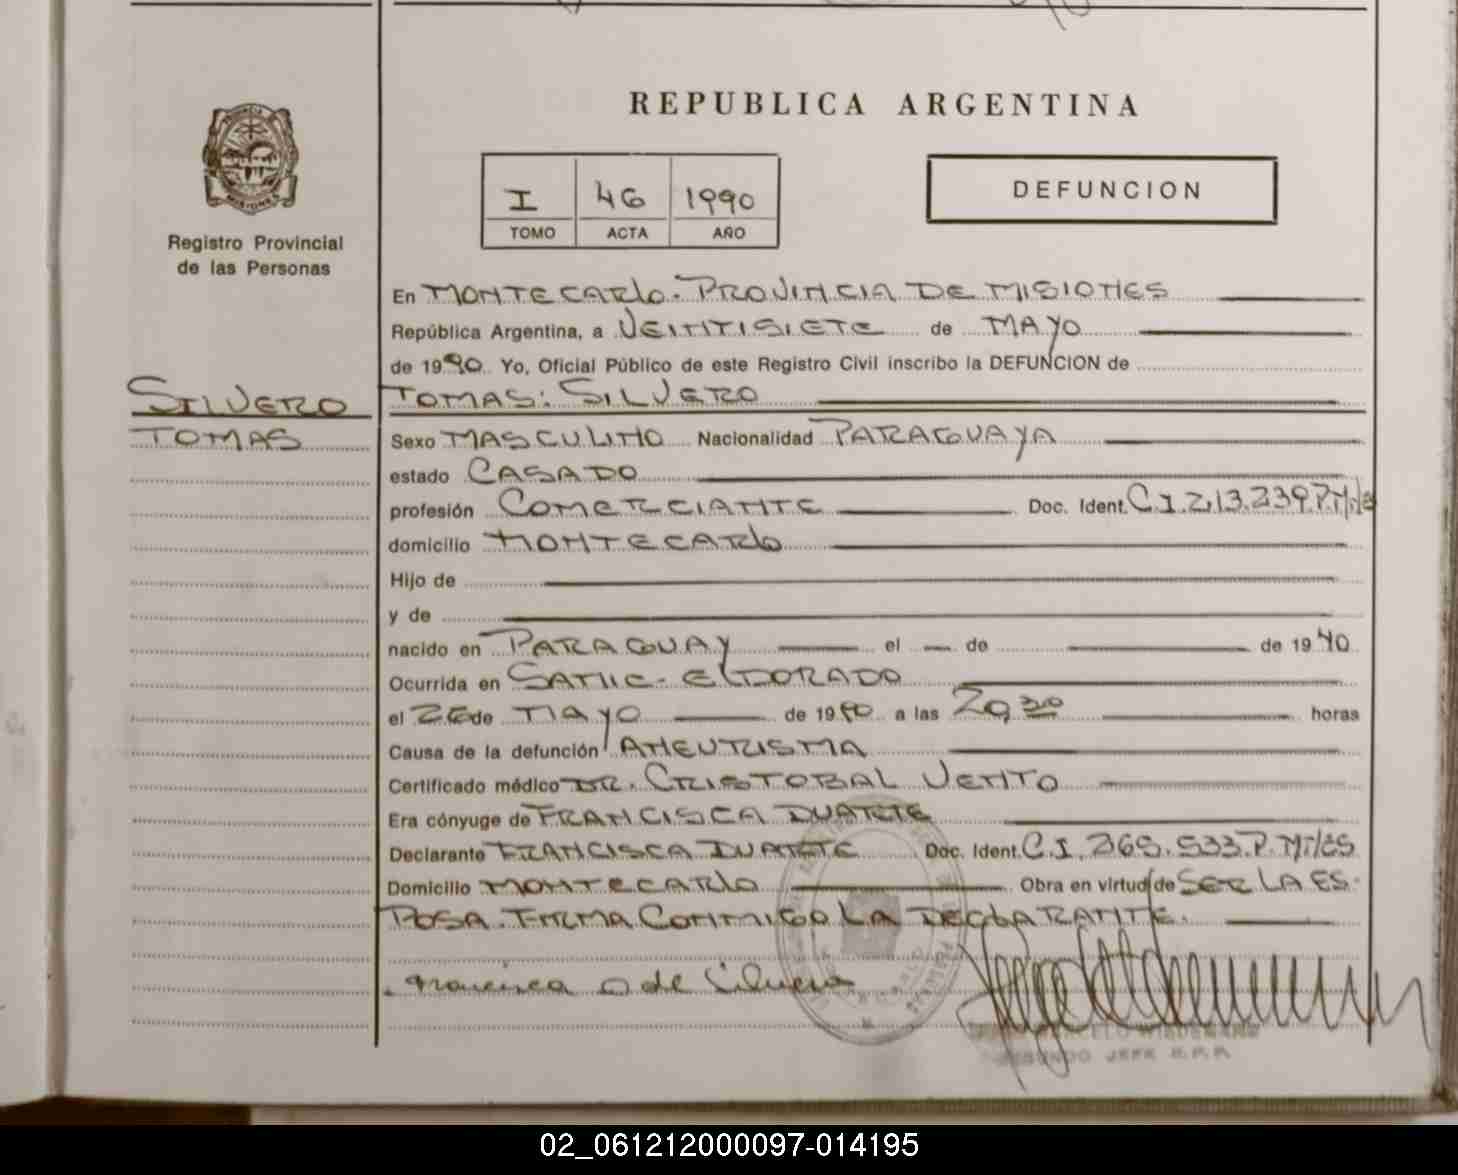 REPUBLICA ARGENTINA
I 46 1990
TOMO ACTA AÑO
DEFUNCION
MISIONES
Registro Provincial
de las Personas
En MONTECARlo. PROVINCIA DE MISIONES
República Argentina, a VEINTISIETE de MAYO
de 1990. Yo, Oficial Público de este Registro Civil inscribo la DEFUNCION de
SILVERO
TOMAS
TOMAS: SILVERO
Sexo MASCULINO Nacionalidad PARAGUAYA
estado CASADO
profesión COMERCIANTE Doc. Ident. C.I. 213.239.P.M/nes
domicilio MONTECARlo
Hijo de
y de
nacido en PARAGUAY el de de 1940
Ocurrida en SANIC- ElDORADO
el 26 de MAYO de 1990 a las 20,30 horas
Causa de la defunción ANEURISMA
Certificado médico DR. CRISTOBAL VENTO
Era cónyuge de FRANCISCA DUARTE
Declarante FRANCISCA DUARTE Doc. Ident. C.I. 269.533.P. M/nes
Domicilio MONTECARlo Obra en virtud de SER LA ES-
POSA. FIRMA CONMIGO LA DEClARANTE.
Francisca D de Silvero
MARCELO WIEDEMANN
SEGUNDO JEFE R.P.P.
02_061212000097-014195